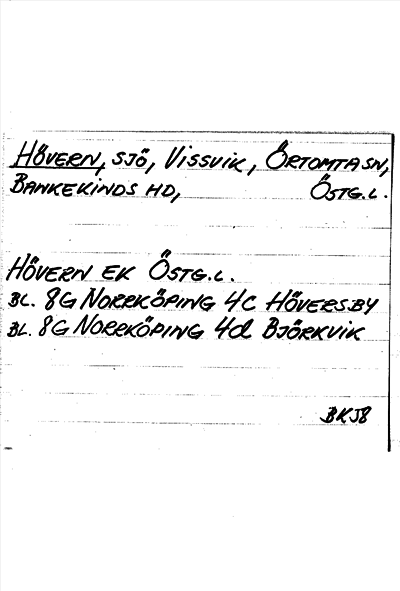 HÖVERN, SJÖ, VISSVIK, ÖRTOMTA SN,
BANKEKINDS HD, ÖSTG.L.
HÖVERN EK ÖSTG.L.
BL. 8G NORRKÖPING 4C HÖVERSBY
BL. 8G NORRKÖPING 4d BJÖRKVIK
BKJ8